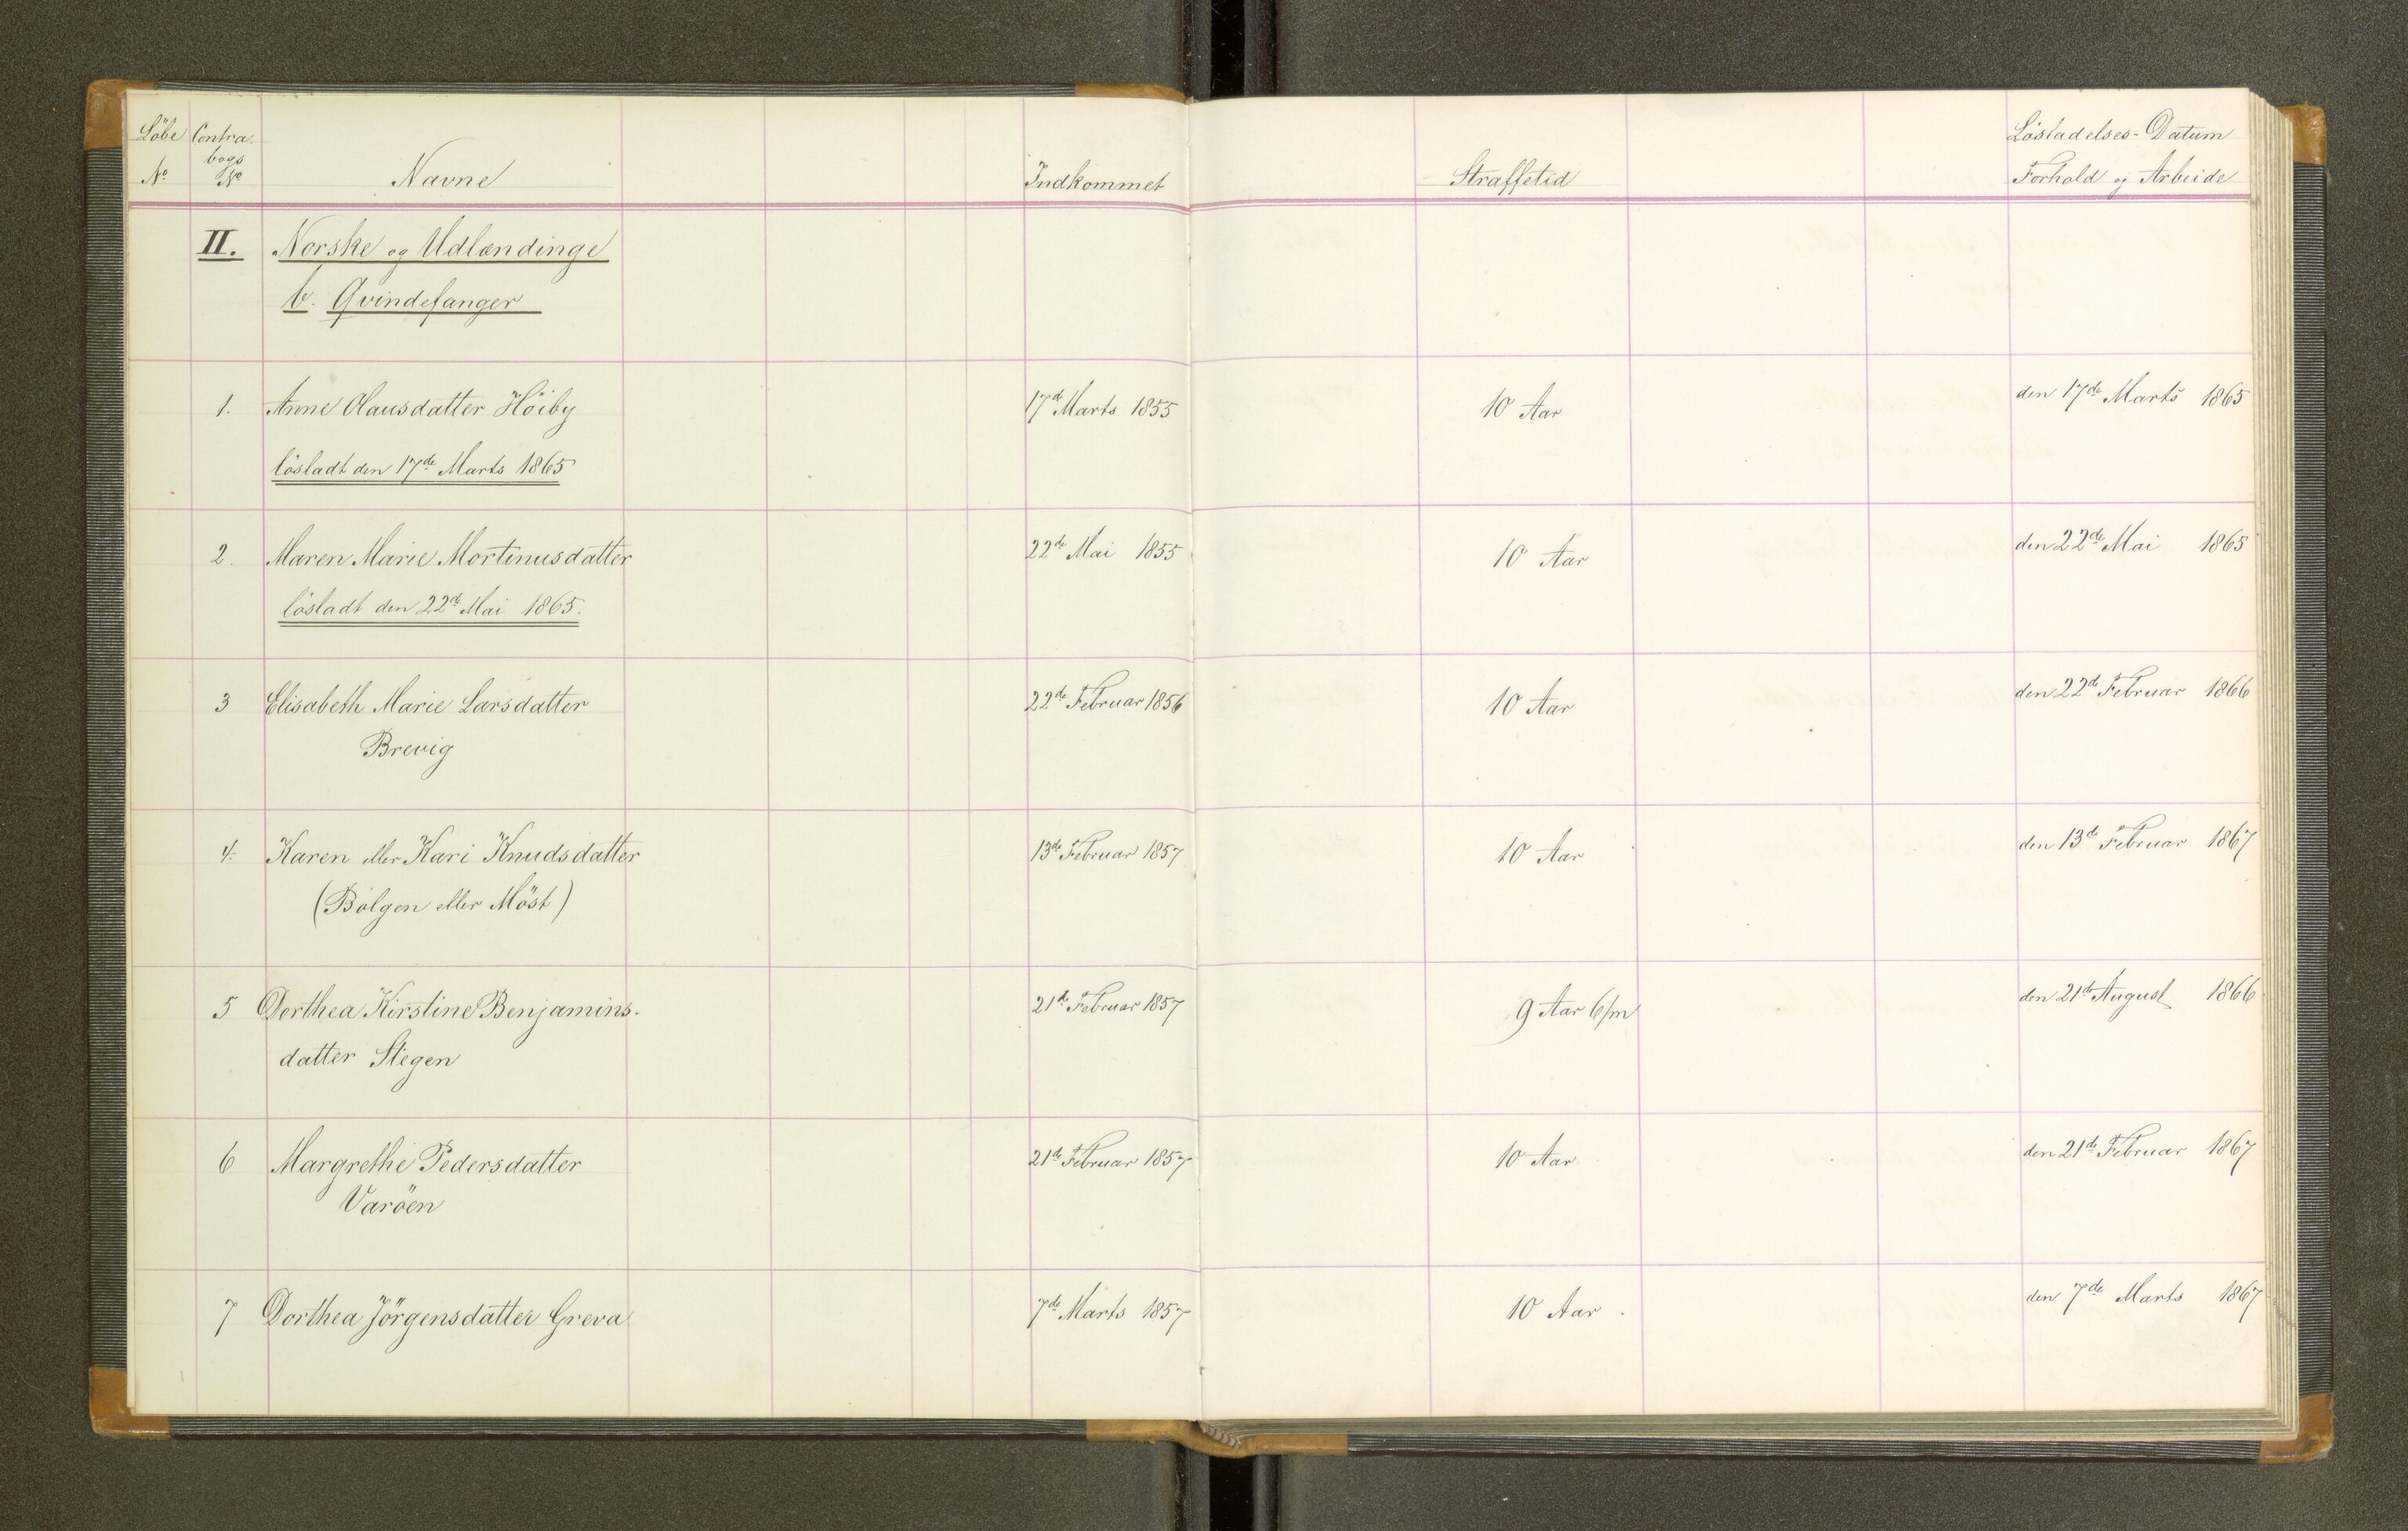 Löbe Contra Lösladelses-Datum
bogs
No No Navne Indkommet Straffetid Forhold og Arbeide
II. Norske og Udlændinge
b. Qvindefanger
1. Anne Olausdatter Höiby 17d Marts 1855 10 Aar den 17de Marts 1865
lösladt den 17de Marts 1865
2. Maren Marie Mortinusdatter 22de Mai 1855 10 Aar den 22de Mai 1865
lösladt den 22d Mai 1865.
3 Elisabeth Marie Larsdatter 22de Februar 1856 10 Aar den 22d Februar 1866
Brevig
4. Karen eller Kari Knudsdatter 13de Februar 1857 10 Aar den 13de Februar 1867
(Bolgen eller Möst)
5 Dorthea Kirstine Benjamins- 21de Februar 1857 9 Aar 6/m den 21de August 1866
datter Stegen
6 Margrethe Pedersdatter 21de Februar 1857 10 Aar den 21de Februar 1867
Varöen
7 Dorthea Jörgensdatter Greva 7de Marts 1857 10 Aar. den 7de Marts 1867